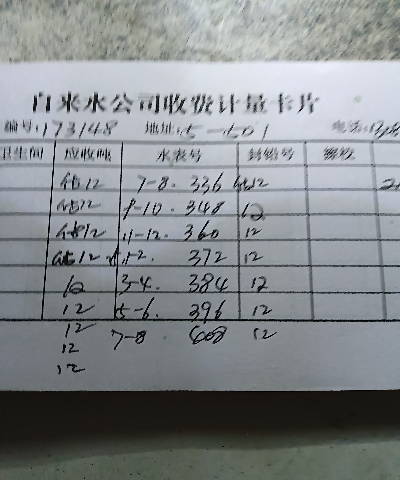 自来水公司收费计量卡片
编号:173148 地址:5-501 电话:
卫生间 应收吨 水表号 封铅号 签收
估12 7-8. 336 估12
估12 9-10. 348 12
估12 11-12. 360 12
估12 1-2. 372 12
12 3-4. 384 12
12 5-6. 396 12
12 7-8 408 12
12
12